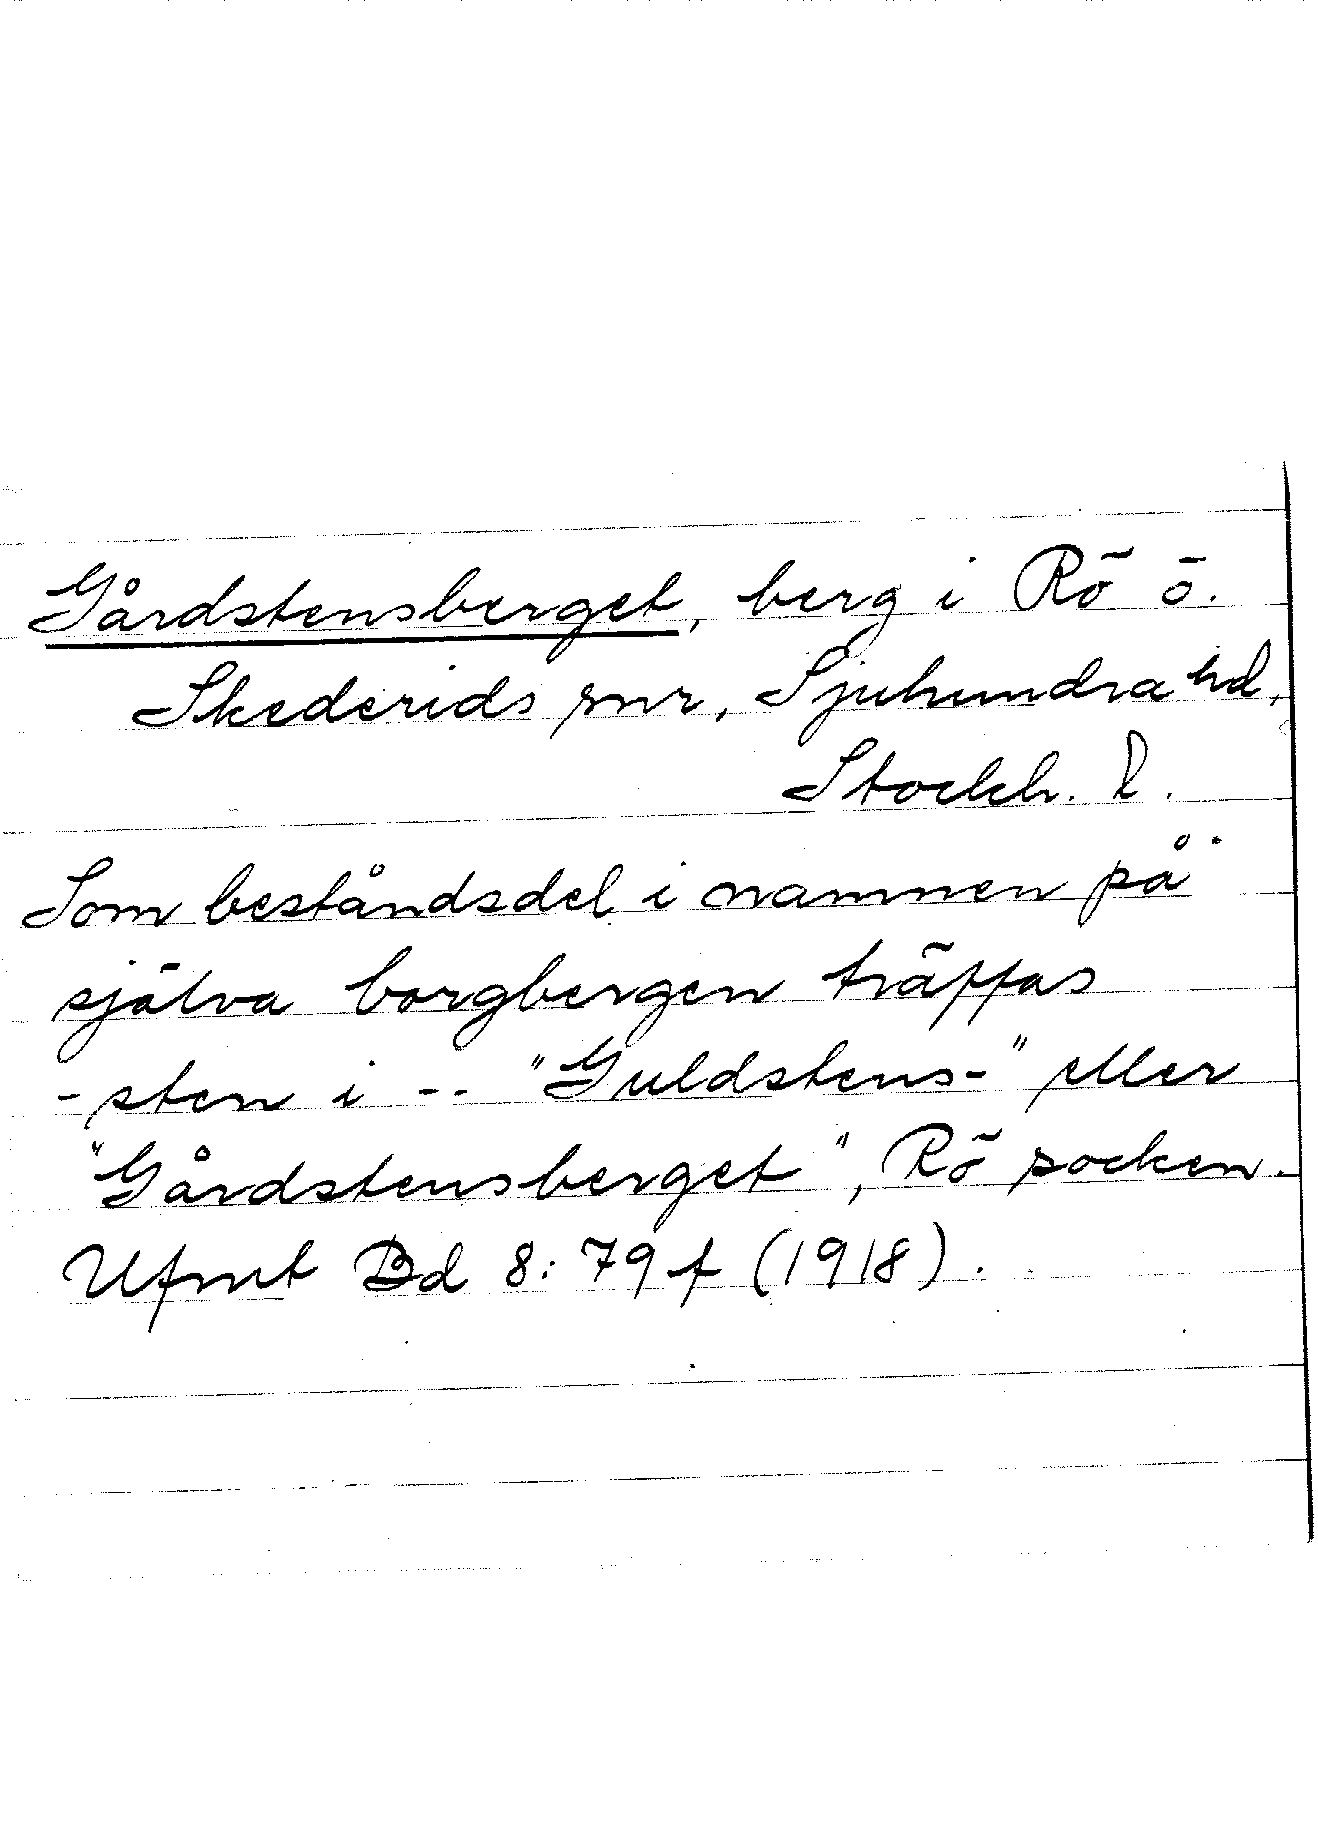 Gårdstensberget, berg i Rö o.
Skederids snr, Sjuhundra hd,
Stockh. l.
Som beståndsdel i namnen på
själva borgbergen träffas
-sten i -- "Guldstens-" eller
"Gårdstensberget", Rö socken.
Ufmt Bd 8: 79 f (1918).